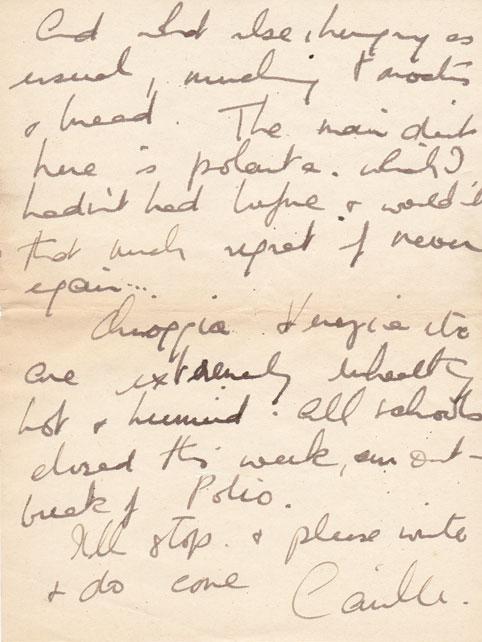 And what else, hungry as
usual, munching tomatoes
& bread. The main diet
here is polenta. which I
hadn't had before & would'nt
that much regret if never
again...
Chioggia & Venezia etc
are extremely unhealthy
hot & humid. all schools
closed this week, an out-
break of Polio.
I'll stop. & please write
& do come
Camilla.